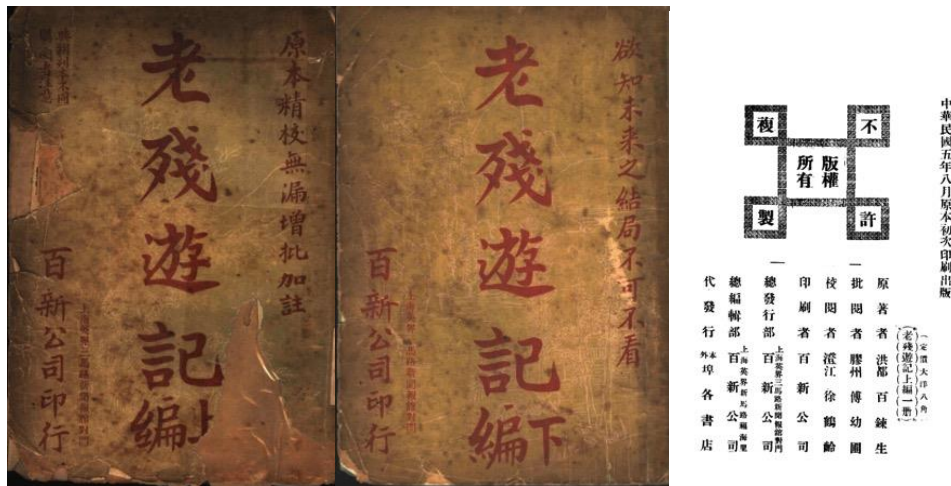 原本精校無漏增批加註
老殘遊記上編
百新公司印行
欲知未來之結局不可不看
老殘遊記下編
百新公司印行
中華民國五年八月原本初次印刷出版
不許
複製
版權
所有
定價大洋八角
老殘遊記上編一冊
原著者洪都百鍊生
批閱者膠州傅幼圃
校閱者澄江徐鶴齡
印刷者百新公司
總發行部上海英界三馬路新聞報館對門百新公司
總編輯部上海英界新馬路福海里百新公司
代發行本外埠各書店